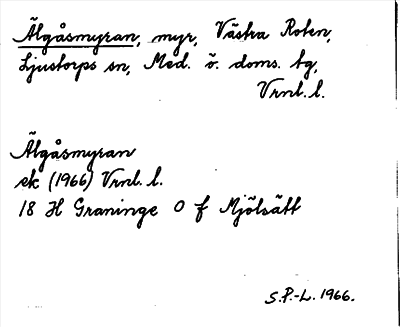 Älgåsmyran, myr, Västra Roten,
Ljustorps sn, Med. ö. doms. tg,
Vrnl. l.
Älgåsmyran
ek (1966) Vrnl. l.
18 H Graninge 0 f Mjölsätt
S.P.-L. 1966.